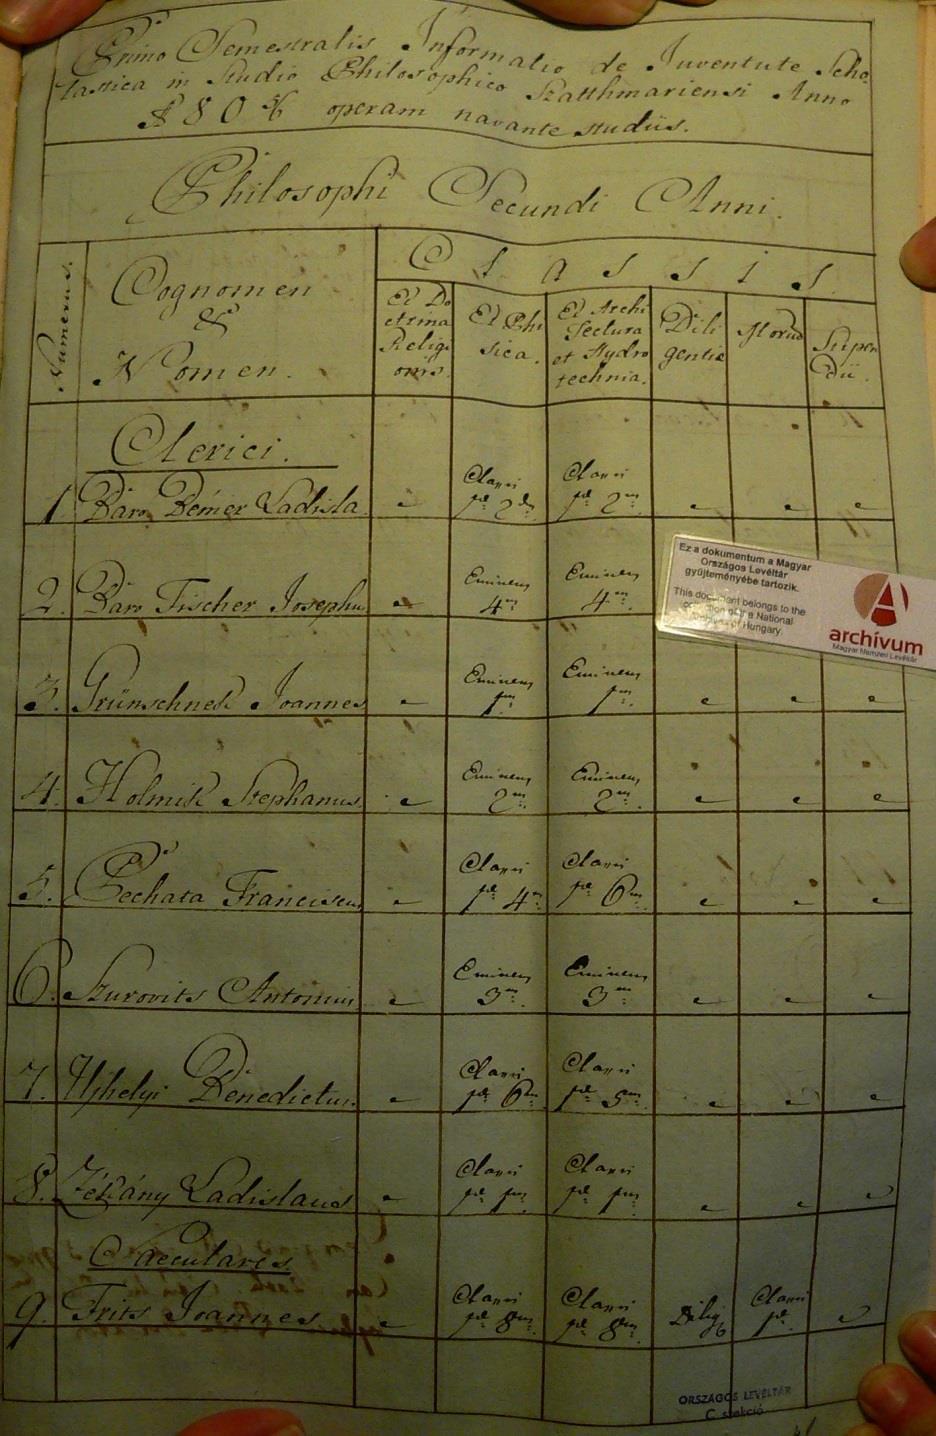 Primo Semestralis Informatio de Juventute Scho
lastica in Studio Philosophico Szatthmariensi Anno
180 operam navante studiis.
Philosophi Secundi Anni.
Numerus.
Cognomen
&
Nomen.
Classis
Ex Do
ctrina
Religi
onis.
Ex Phi
sica.
Ex Archi
tectura
et Hydro
technia.
Dili
gentiæ
Morum
Stipen
dii.
Clerici.
1 Baro Bémer Ladisla. e Classi pæ 2dn Classi pæ 2m e e e
2. Baro Fischer Josephu e Eminen 4m Eminen 4m
3. Grünschnek Joannes e Eminen 1m Eminen 1m e e e
4. Holmik Stephanus e Eminen 2m Eminen 2m e e e
5. Pechata Franciscu e Classi pæ 4m Classi pæ 6m e e e
6. Szurovits Antonius e Eminen 3m Eminen 3m e e e
7. Ujhelyi Benedictus e Classi pæ 6m Classi pæ 5m e e e
8. Zékány Ladislaus e Classi pæ 1m Classi pæ 1m e e e
Sæculares
9. Frits Joannes e Classi pæ 8m Classi pæ 8m Dilig Classi pæ e
Ez a dokumentum a Magyar
Országos Levéltár
gyűjteményébe tartozik.
This document belongs to the
collection of the National
Archives of Hungary.
archívum
Magyar Nemzeti Levéltár
ORSZÁGOS LEVÉLTÁR
C szekció